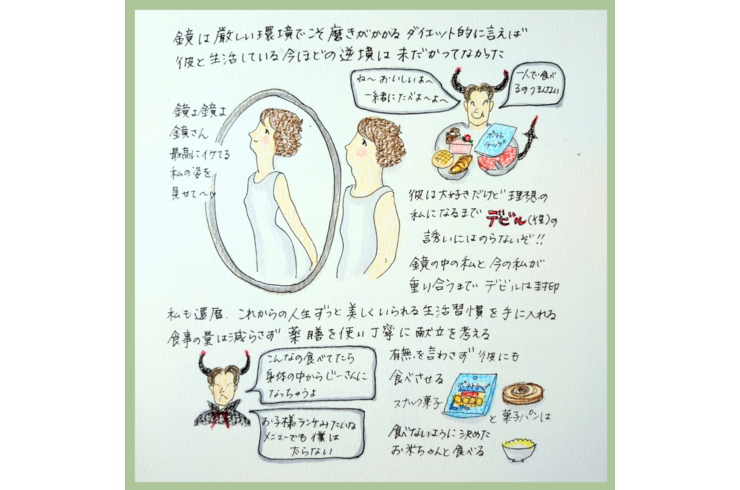 鏡は厳しい環境でこそ磨きがかかる ダイエット的に言えば
彼と生活している今ほどの逆境は未だかつてなかった
ね〜おいしいよ〜
一緒にたべよ〜よ〜
一人で食べ
るのつまんない
鏡よ鏡よ
鏡さん
最高にイケてる
私の姿を
見せて〜♡
ポテト
チップ
彼は大好きだけど理想の
私になるまで デビル(彼)の
誘いにはのらないぞ!!
鏡の中の私と今の私が
重り合うまで デビルは封印
私も還暦、これからの人生ずっと美しくいられる生活習慣を手に入れる
食事の量は減らさず 薬膳を使い丁寧に献立を考える
こんなの食べてたら
身体の中からじーさんに
なっちゃうよ
お子様ランチみたいな
メニューでも僕は
太らない
有無を言わさず彼にも
食べさせる
スナック菓子
と菓子パンは
食べないように決めた
お米ちゃんと食べる